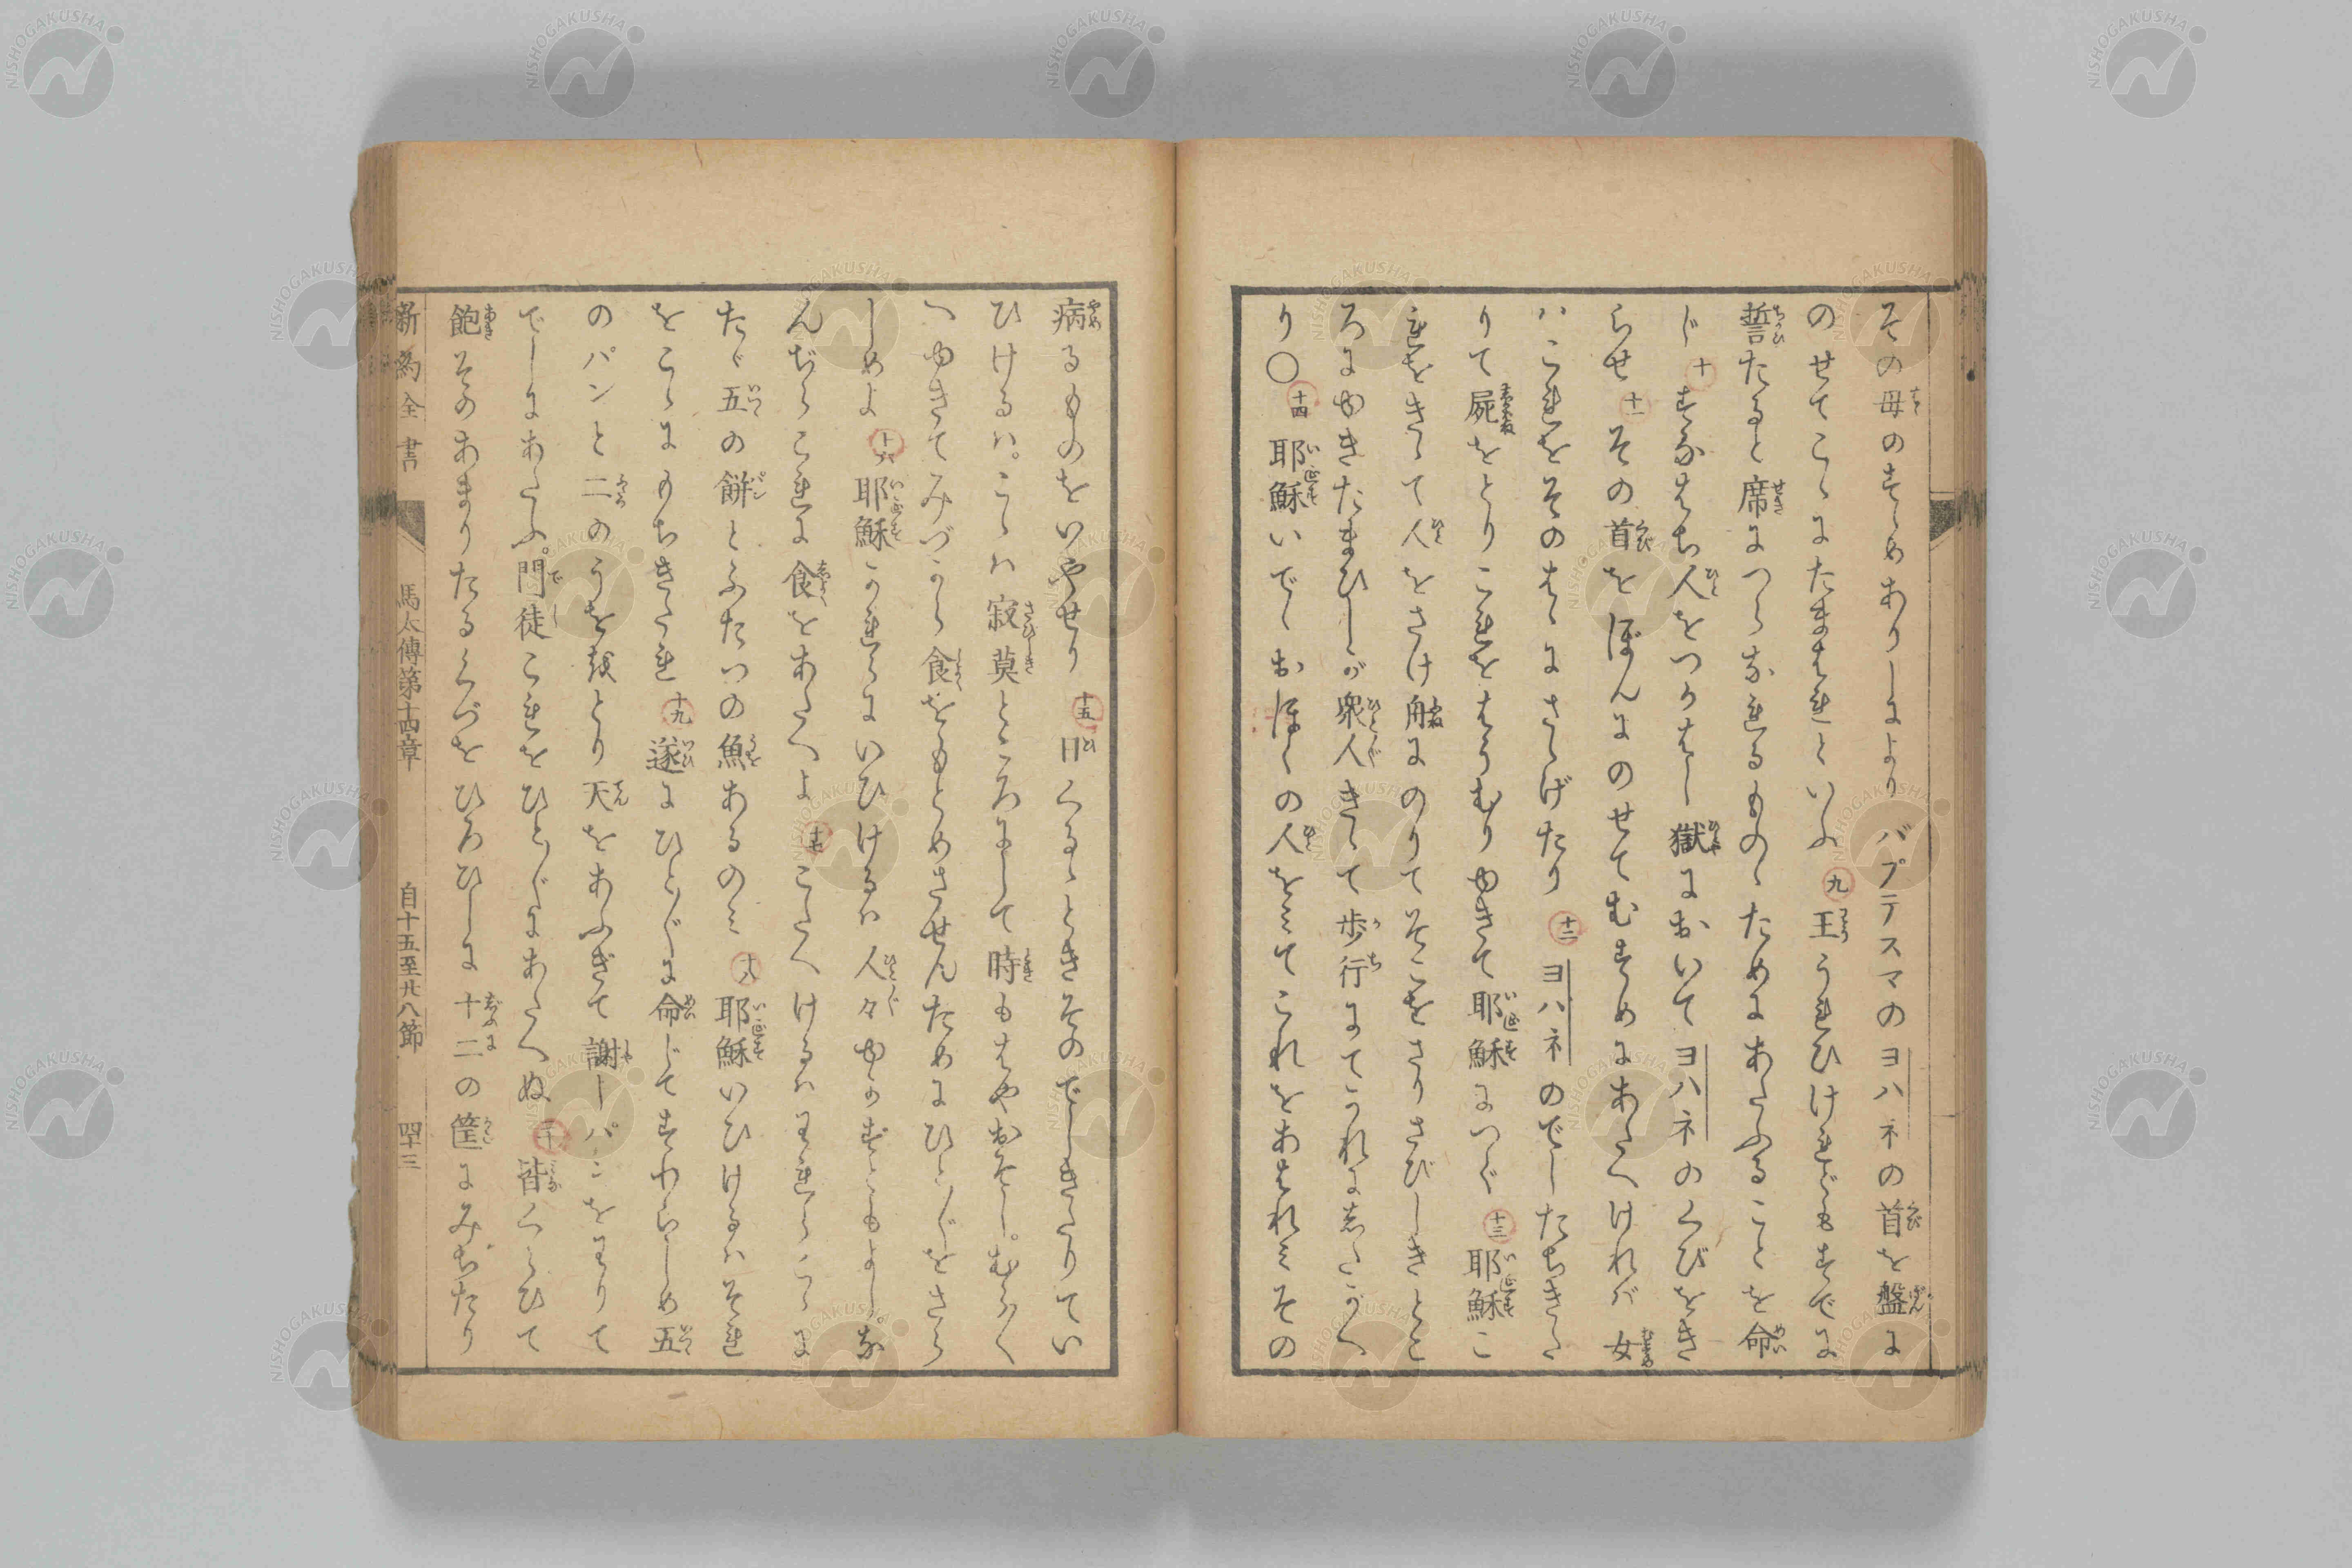 その母のすゝめありしにより バプテスマのヨハネの首を盤に
のせてこゝにたまはれといふ 九 王うれひけれどもすでに
誓たると席につらなれるものゝためにあたふることを命
じ 十 すなはち人をつかはし獄においてヨハネのくびをき
らせ 十一 その首をぼんにのせてむすめにあたへければ女
ハこれをそのはゝにさゝげたり 十二 ヨハネのでしたちきた
りて屍をとりこれをはうむりゆきて耶穌につぐ 十三 耶穌こ
れをきゝて人をさけ舟にのりてそこをさりさびしきとこ
ろにゆきたまひしが衆人きゝて歩行にてかれにしたがへ
り〇 十四 耶穌いでゝおほくの人をみてこれをあはれみその
病るものをいやせり 十五 日くるゝときそのでしきたりてい
ひけるハ。こゝハ寂莫ところにして時もはやおそし。むらく
へゆきてみづから食をもとめさせんためにひと〴〵をさら
しめよ 十六 耶穌かれらにいひけるハ人々ゆかずともよし。な
んぢらこれに食をあたへよ 十七 こたへけるハわれらこゝに
たゞ五の餅とふたつの魚あるのみ 十八 耶穌いひけるハそれ
をこゝにもちきたれ 十九 遂にひと〴〵に命じてすわらしめ五
のパンと二のうを越とり天をあふぎて謝しパンをわりて
でしにあたふ。門徒これをひと〴〵にあたへぬ 二十 皆くらひて
飽そのあまりたるくづをひろひしに十二の筐にみちたり
新約全書 馬太傳第十四章 自十五至廿八節 四十三
NISHOGAKUSHA